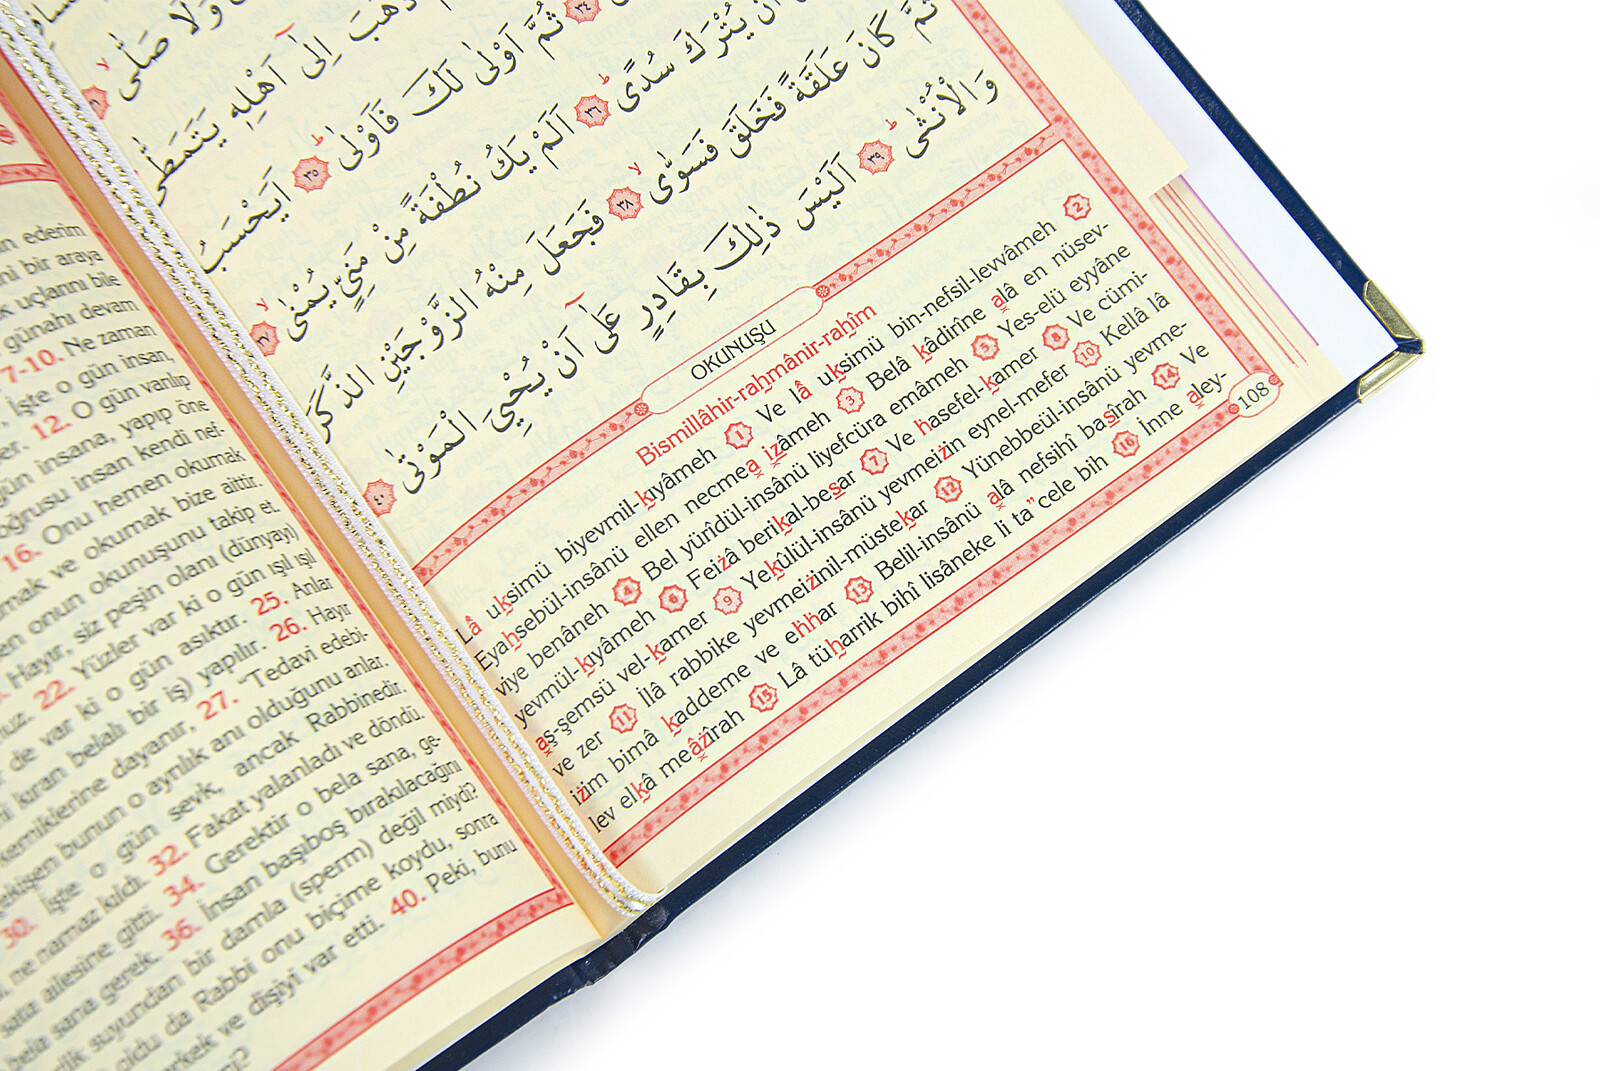 وَلَا صَلّٰى
ذَهَبَ اِلٰٓى اَهْلِه۪ يَتَمَطّٰى
٣٤ ثُمَّ اَوْلٰى لَكَ فَاَوْلٰى ٣٥ اَيَحْسَبُ
اَنْ يُتْرَكَ سُدًى ٣٦ اَلَمْ يَكُ نُطْفَةً مِنْ مَنِيٍّ يُمْنٰى ٣٧
ثُمَّ كَانَ عَلَقَةً فَخَلَقَ فَسَوّٰى ٣٨ فَجَعَلَ مِنْهُ الزَّوْجَيْنِ الذَّكَرَ
وَالْاُنْثٰى ٣٩ اَلَيْسَ ذٰلِكَ بِقَادِرٍ عَلٰٓى اَنْ يُحْيِيَ الْمَوْتٰى ٤٠
OKUNUŞU
Bismillâhir-rahmânir-rahîm
Lâ uksimü biyevmil-kıyâmeh 1 Ve lâ uksimü bin-nefsil-levvâmeh 2
Eyahsebül-insânü ellen necmea ızâmeh 3 Belâ kâdirîne alâ en nüsev-
viye benâneh 4 Bel yürîdül-insânü liyefcüra emâmeh 5 Yes-elü eyyâne
yevmül-kıyâmeh 6 Feizâ berikal-besar 7 Ve hasefel-kamer 8 Ve cümi-
aş-şemsü vel-kamer 9 Yekûlül-insânü yevmeizin eynel-mefer 10 Kellâ lâ
ve zer 11 İlâ rabbike yevmeizinil-müstekar 12 Yünebbeül-insânü yevme-
izim bimâ kaddeme ve ehhar 13 Belil-insânü alâ nefsihî basîrah 14 Ve
lev elkâ meâzîrah 15 Lâ tüharrik bihî lisâneke li ta"cele bih 16 İnne aley-
108
ederim
ni bir araya
k uçlarını bile
günahı devam
7-10. Ne zaman
İşte o gün insan,
12. O gün varılıp
gün insana, yapıp öne
oğrusu insan kendi nef-
16. Onu hemen okumak
mak ve okumak bize aittir.
en onun okunuşunu takip et.
Hayır, siz peşin olanı (dünyayı)
22. Yüzler var ki o gün ışıl ışıl
de var ki o gün asıktır. 25. Anlar
kıran belalı bir iş) yapılır. 26. Hayır
kemiklerine dayanır, 27. "Tedavi edebi-
bunun o ayrılık anı olduğunu anlar.
30. İşte o gün sevk, ancak Rabbinedir.
ne namaz kıldı. 32. Fakat yalanladı ve döndü.
ailesine gitti. 34. Gerektir o bela sana, ge-
bela sana gerek. 36. İnsan başıboş bırakılacağını
suyundan bir damla (sperm) değil miydi?
oldu da Rabbi onu biçime koydu, sonra
erkek ve dişiyi var etti. 40. Peki, bunu